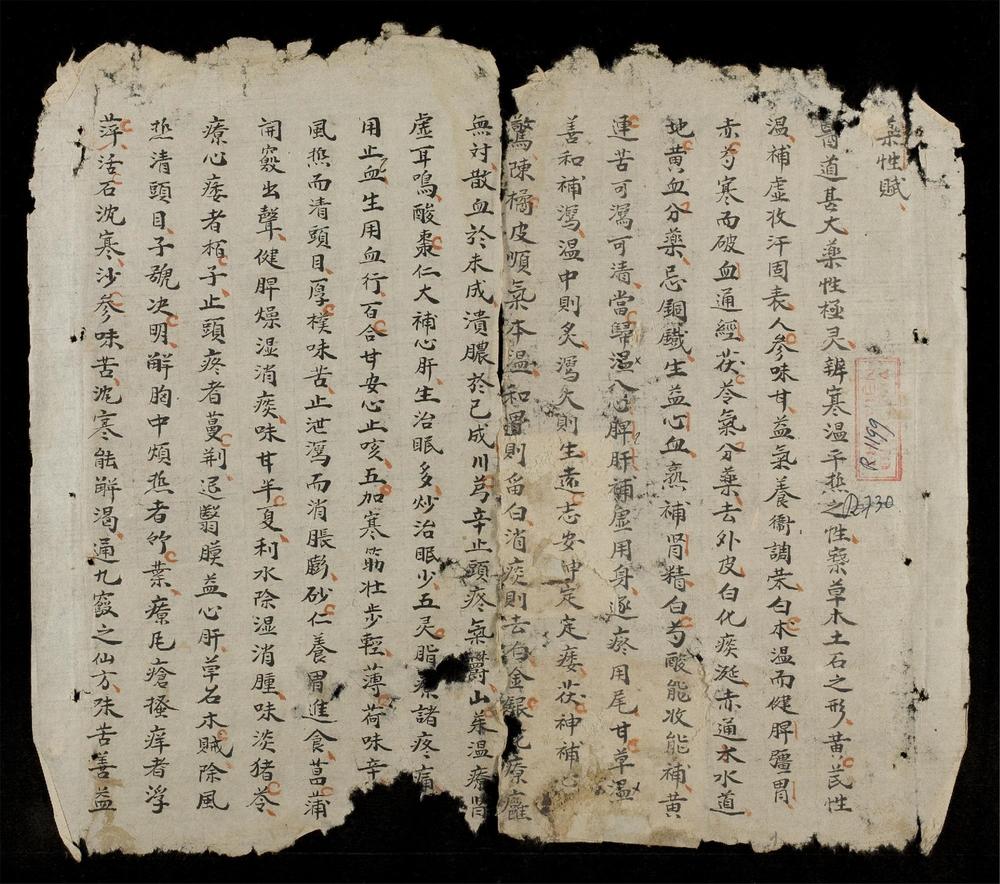 藥性賦
醫道甚大藥性極灵辨寒温平热之性察草木土石之形黄芪性
温補虚收汗固表人參味甘益氣養衛調荣白术温而健脾彊胃
赤芍寒而破血通經茯苓氣分藥去外皮白化痰涎赤通水水道
地黄血分藥忌銅鐵生益心血熟補腎精白芍酸能收能補黄
連苦可瀉可清當歸温入心脾肝補虚用身逐疼用尾甘草温
善和補瀉温中則炙瀉火則生遠志安神定定痿茯神補心
驚陳橘皮順氣本温和胃則留白消痰則去白金銀花療癰
無対散血於未成潰膿於已成川芎辛止頭疼氣欝山茱温療腎
虚耳鳴酸棗仁大補心肝生治眠多炒治眠少五灵脂療諸疼痛
用止血生用血行百合甘安心止咳五加寒筋壮步輕薄荷味辛
風热而清頭目厚樸味苦止泄瀉而消脹膨砂仁養胃進食菖蒲
開竅出聲健脾燥湿消痰味甘半夏利水除湿消腫味淡猪苓
療心痿者栢子止頭疼者蔓荆退翳膜益心肝草名木賊除風
热清頭目子號决明解胸中煩热者竹葉療尾瘡搔痒者浮
萍活石沈寒沙參味苦沈寒能解渴通九竅之仙方殊苦善益
R.1199
2730